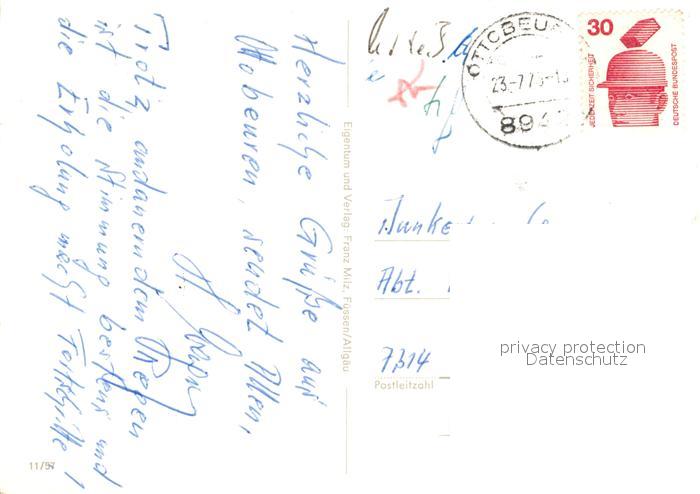 Herzliche Grüße aus
Ottobeuren, sendet Allen,
Trotz andauerndem Regen
ist die Stimmung bestens und
die Erholung macht Fortschritte!
Eigentum und Verlag: Franz Milz, Füssen/Allgäu
11/57
OTTOBEU
23.-7.7
894
30
JEDERZEIT SICHERHEIT
DEUTSCHE BUNDESPOST
Junke
Abt.
7314
Postleitzahl
privacy protection
Datenschutz